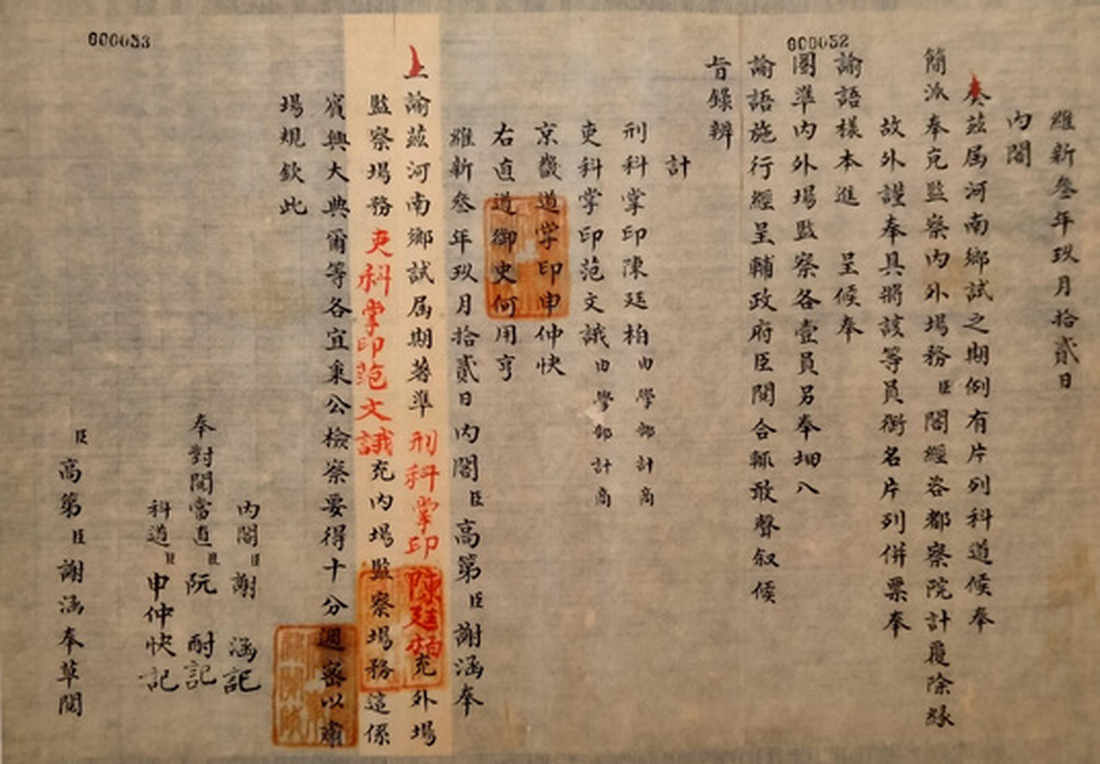 000053
000052
維新叄年玖月拾貳日
內閣
奏茲届河南鄉試之期例有片列科道候奉
簡派奉充監察內外場務臣閣經咨都察院計覆除緣
故外謹奉具將該等員銜名片列併票奉
諭語樣本進 呈候奉
圈準內外場監察各壹員另奉𡋂八
諭語施行經呈輔政府臣閱合輒敢聲叙候
旨錄辨
計
刑科掌印陳廷柏由學部計商
吏科掌印范文誐由學部計商
京畿道掌印申仲快
右直道御史何用亨
維新叄年玖月拾貳日內閣臣高第臣謝涵奉
上諭茲河南鄉試届期著準刑科掌印陳廷柏充外場
監察場務吏科掌印范文誐充內場監察場務這係
賓興大典爾等各宜秉公檢察要得十分週密以肅
場規欽此
內閣臣謝涵記
奉對閱當直臣阮酎記
科道臣申仲快記
臣高第臣謝涵奉草閱